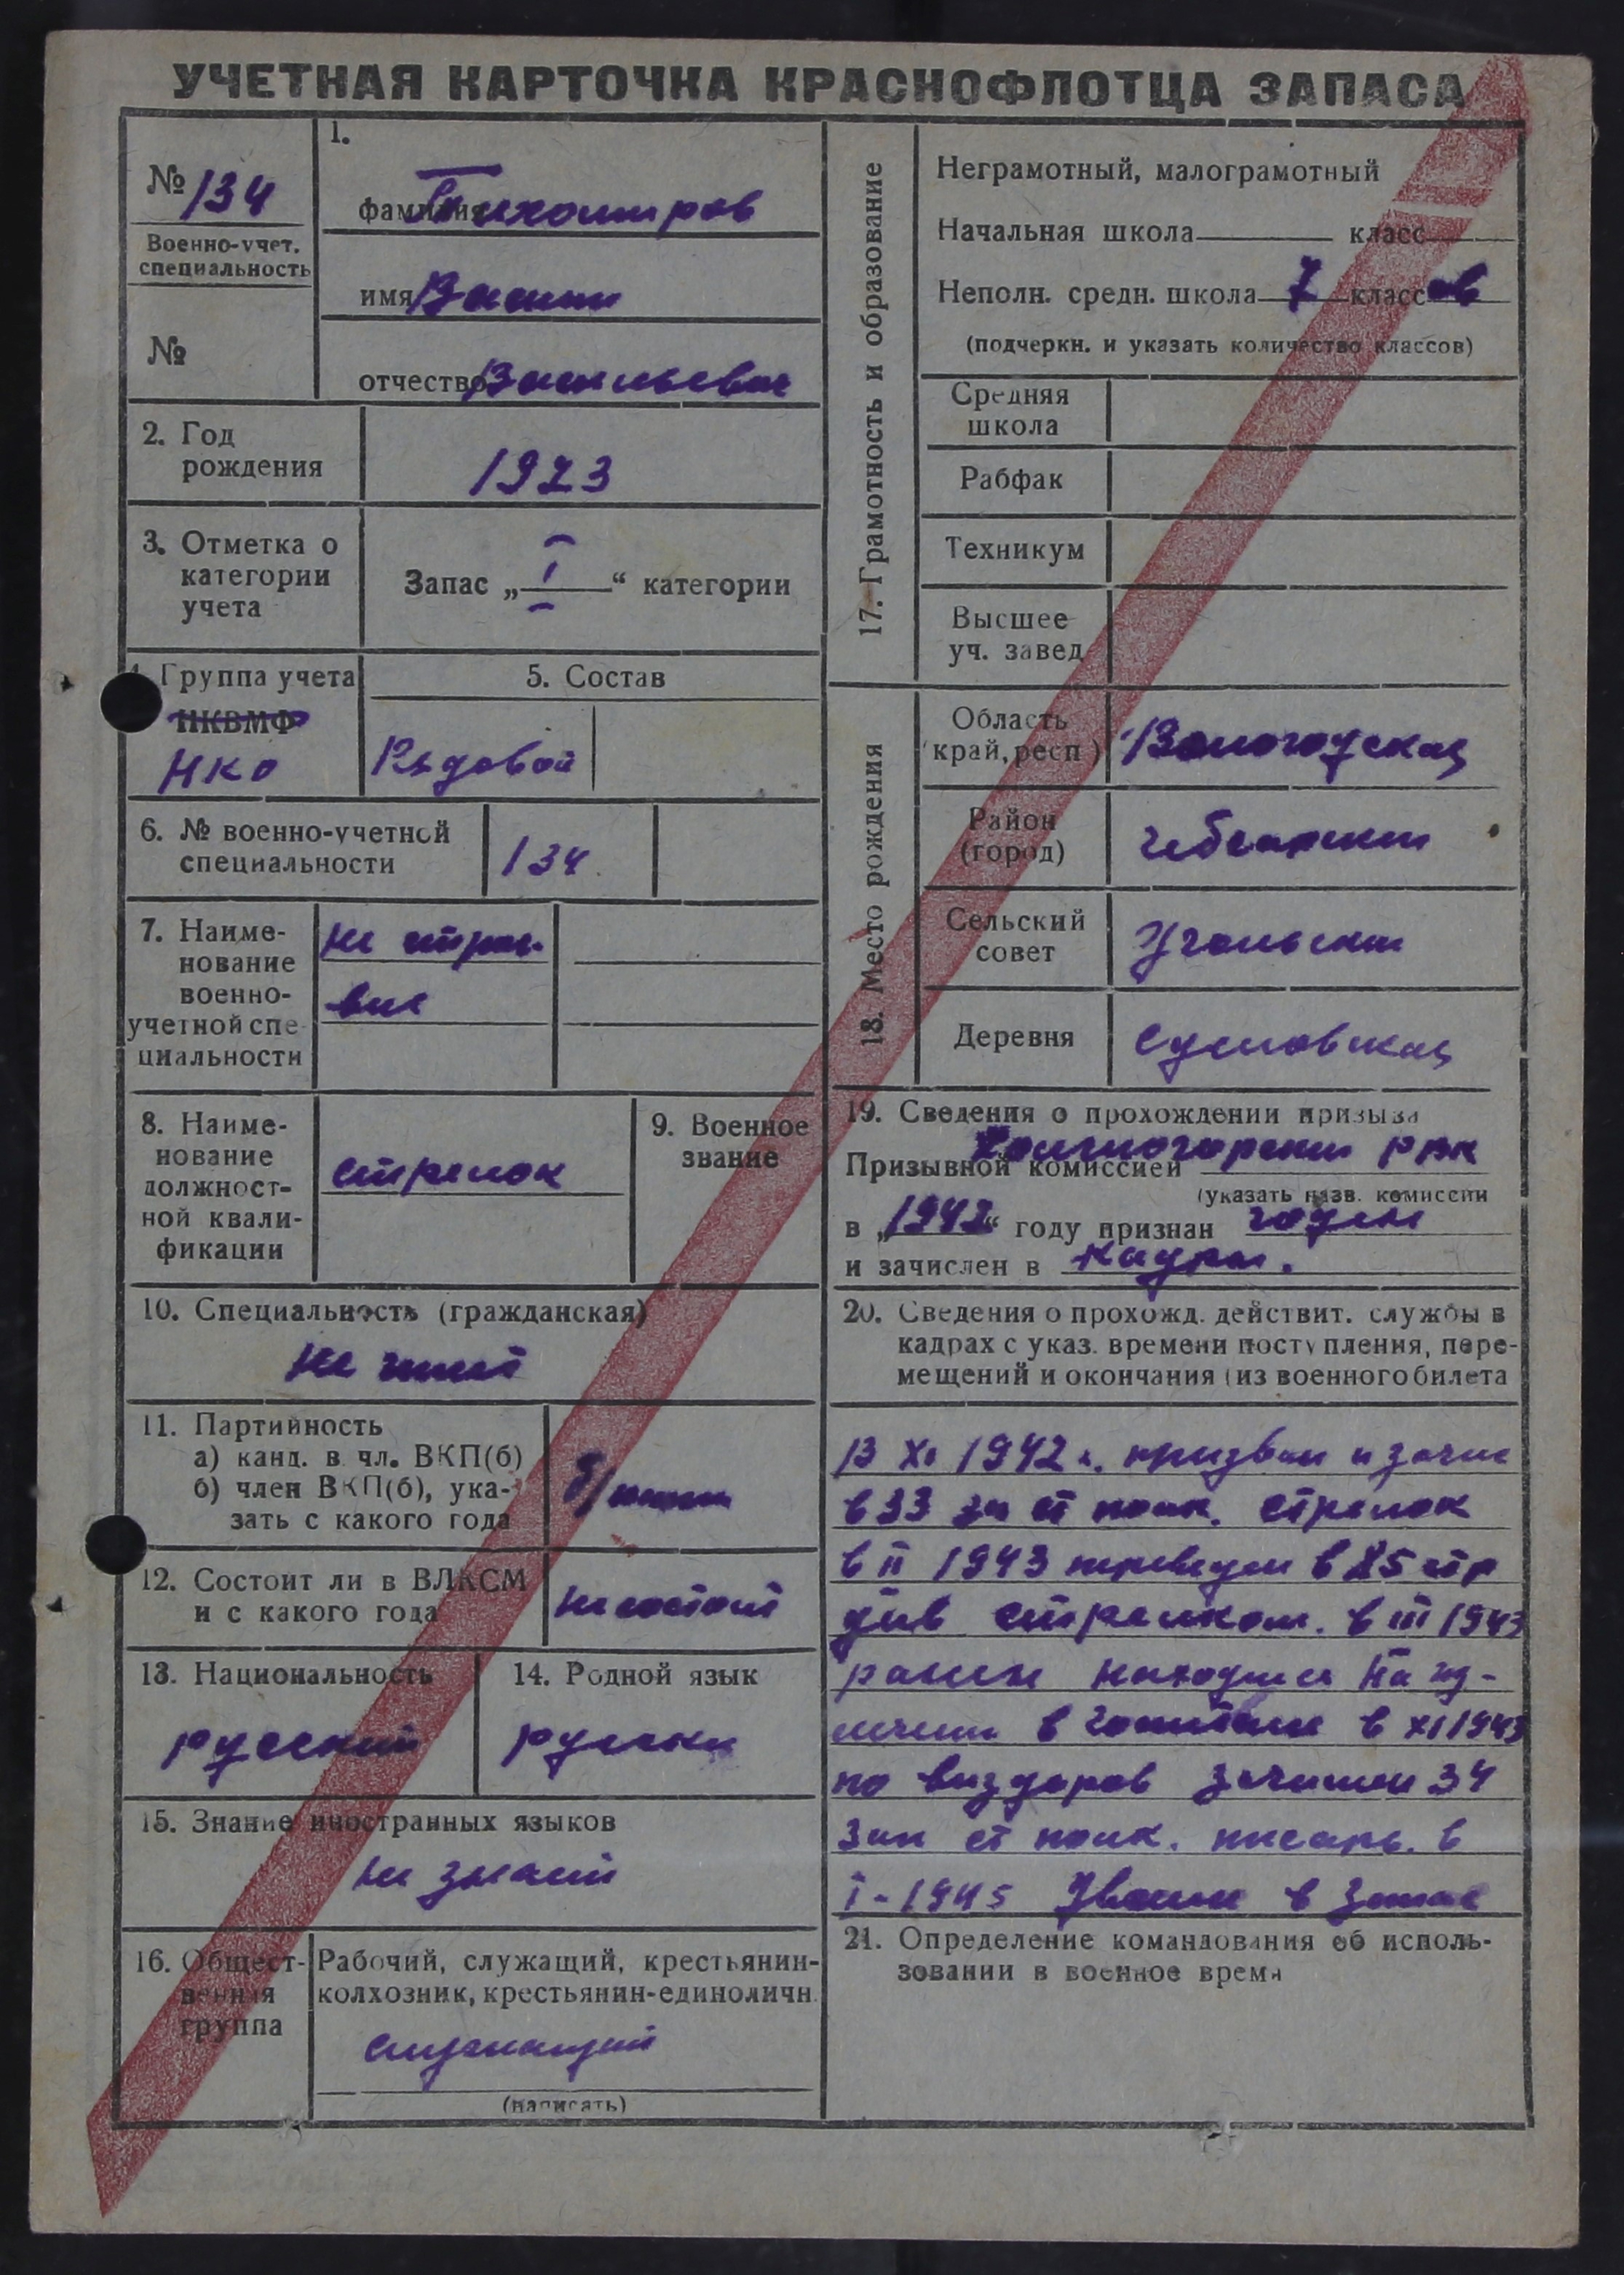 УЧЕТНАЯ КАРТОЧКА КРАСНОФЛОТЦА ЗАПАСА
№ 134
Военно-учет.
специальность
№
1.
фамилия Тихомиров
имя Васили
отчество Васильевич
2. Год
рождения
1923
3. Отметка о
категории
учета
Запас „ I “ категории
4. Группа учета
НКВМФ
НКО
5. Состав
Рядовой
6. № военно-учетной
специальности
134
7. Наиме-
нование
военно-
учетной спе
циальности
не строе-
вые
8. Наиме-
нование
должност-
ной квали-
фикации
стрелок
9. Военное
звание
10. Специальность (гражданская)
Не имеет
11. Партийность
а) канд. в чл. ВКП(б)
б) член ВКП(б), ука-
зать с какого года
12. Состоит ли в ВЛКСМ
и с какого года
не состоит
13. Национальность
русский
14. Родной язык
русски
15. Знание иностранных языков
не знает
16. Общест-
венная
группа
Рабочий, служащий, крестьянин-
колхозник, крестьянин-единоличн.
служащий
(написать)
17. Грамотность и образование
Неграмотный, малограмотный
Начальная школа класс
Неполн. средн. школа 7 класс ов
(подчеркн. и указать количество классов)
Средняя
школа
Рабфак
Техникум
Высшее
уч. завед
18. Место рождения
Область
(край, респ)
Вологодская
Район
(город)
Чебсарски
Сельский
совет
Угольски
Деревня
Сусловская
19. Сведения о прохождении призыва
Призывной комиссией РВК
(указать назв. комиссии
в „1942“ году признан годен
и зачислен в кадры.
20. Сведения о прохожд. действит. службы в
кадрах с указ. времени поступления, пере-
мещений и окончания (из военного билета
В XI 1942 г. призван и зачис
в 33 зп ст полк. стрелок
в II 1943 переведен в 85 стр
див стрелком. в III 1943
ранен находился на из-
лечении в госпитале в XI 1943
по выздоров зачислен 34
зап ст полк. писарь. в
I-1945 Уволен в запас
21. Определение командования об исполь-
зовании в военное время